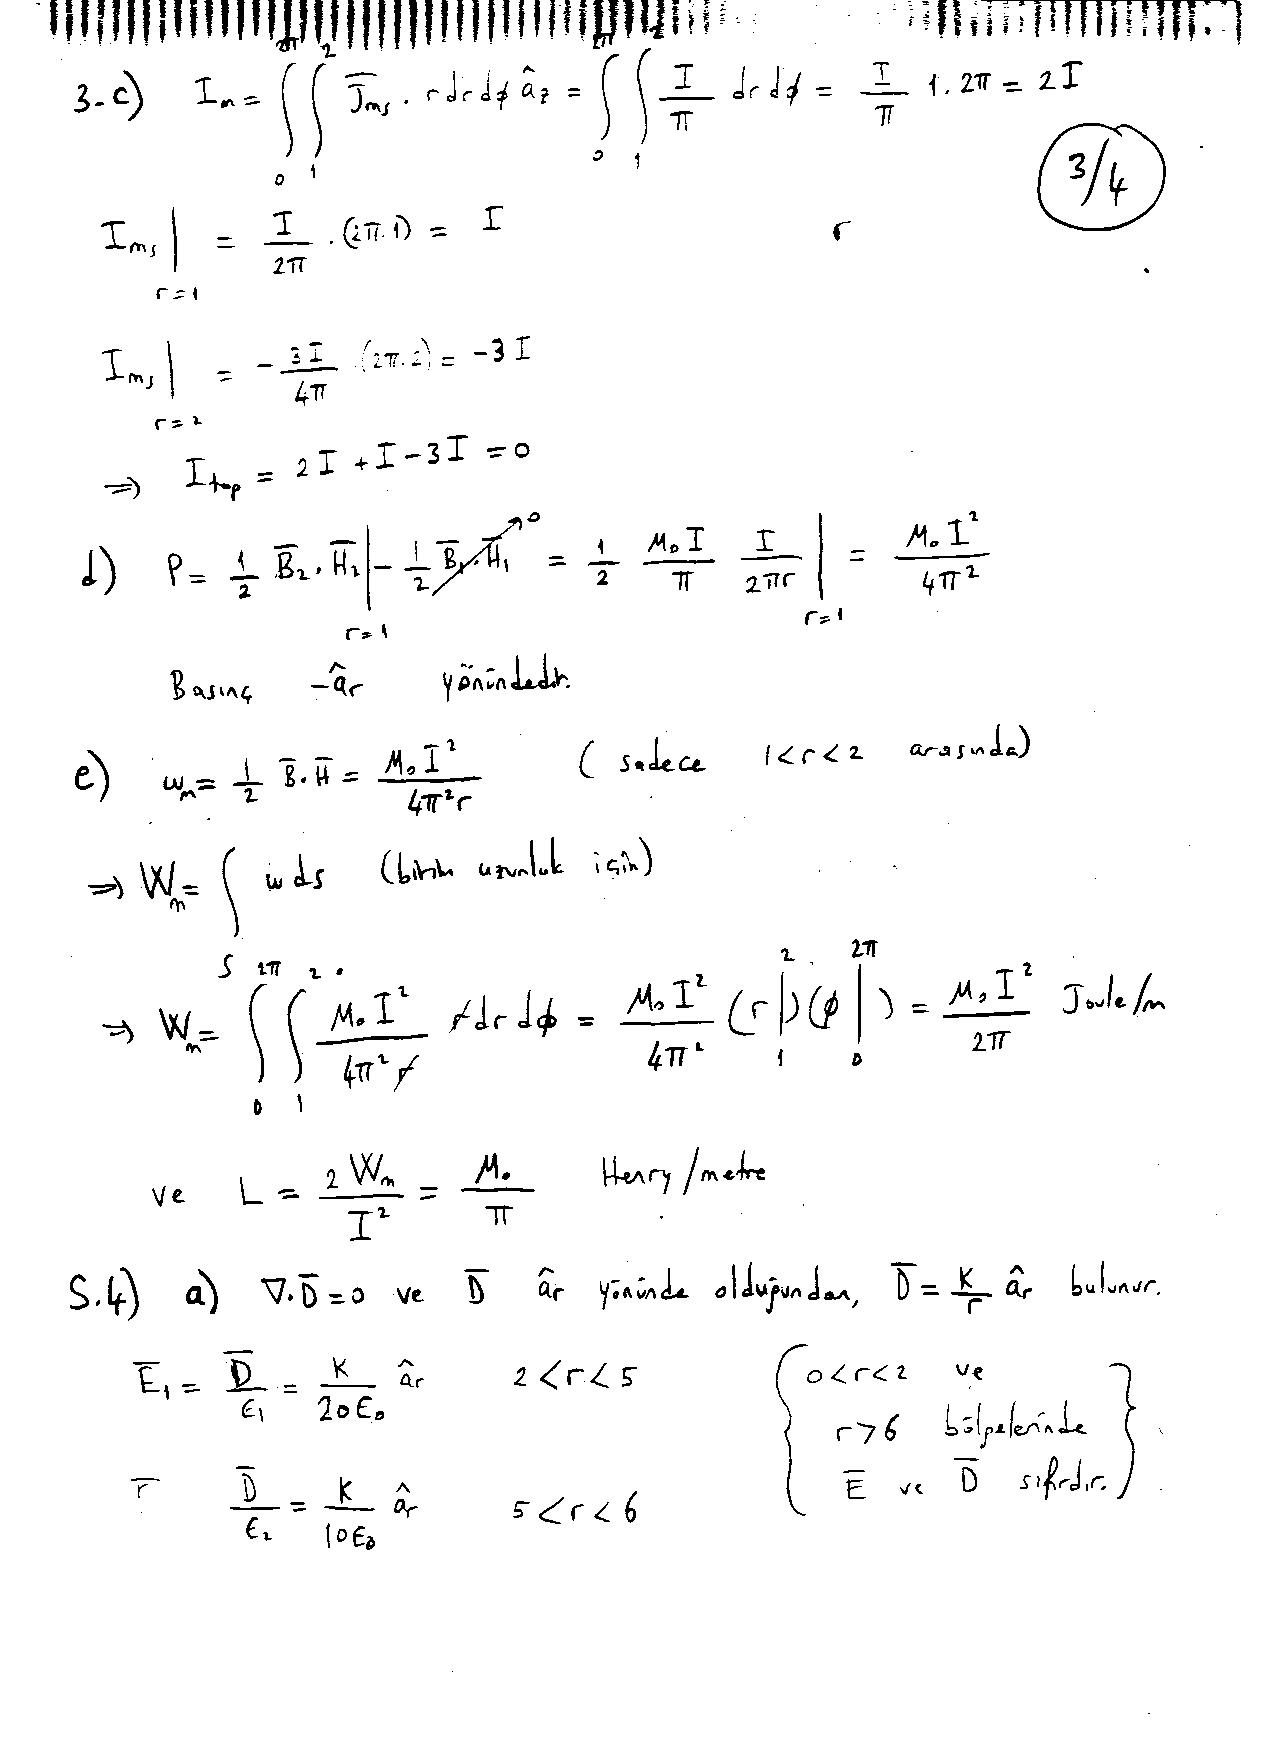 3-c) I_m = ∫_0^{2π} ∫_1^2 J̄_ms . r dr dϕ â_z = ∫_0^{2π} ∫_1^2 I/π dr dϕ = I/π 1. 2π = 2I
3/4
I_ms |_{r=1} = I/2π . (2π.1) = I
r
I_ms |_{r=2} = - 3I/4π (2π.2) = -3I
⇒ I_top = 2I + I - 3I = 0
d) P = 1/2 B̄₂. H̄₂ |_{r=1} - 1/2 B̄₁. H̄₁ ↗0 = 1/2 μ₀I/π I/2πr |_{r=1} = μ₀I²/4π²
Basınç -âr yönündedir.
e) w_m = 1/2 B̄. H̄ = μ₀I²/4π²r ( sadece 1<r<2 arasında)
⇒ W_m = ∫_S w ds (birim uzunluk için)
⇒ W_m = ∫_0^{2π} ∫_1^2 μ₀I²/4π²r r dr dϕ = μ₀I²/4π² (r|_1^2)(ϕ|_0^{2π}) = μ₀I²/2π Joule/m
ve L = 2W_m/I² = μ₀/π Henry/metre
S.4) a) ∇.D̄=0 ve D̄ âr yönünde olduğundan, D̄ = K/r âr bulunur.
Ē₁ = D̄/ϵ₁ = K/20ϵ₀ âr 2<r<5
D̄/ϵ₂ = K/10ϵ₀ âr 5<r<6
{ 0<r<2 ve
r>6 bölgelerinde
Ē ve D̄ sıfırdır. }